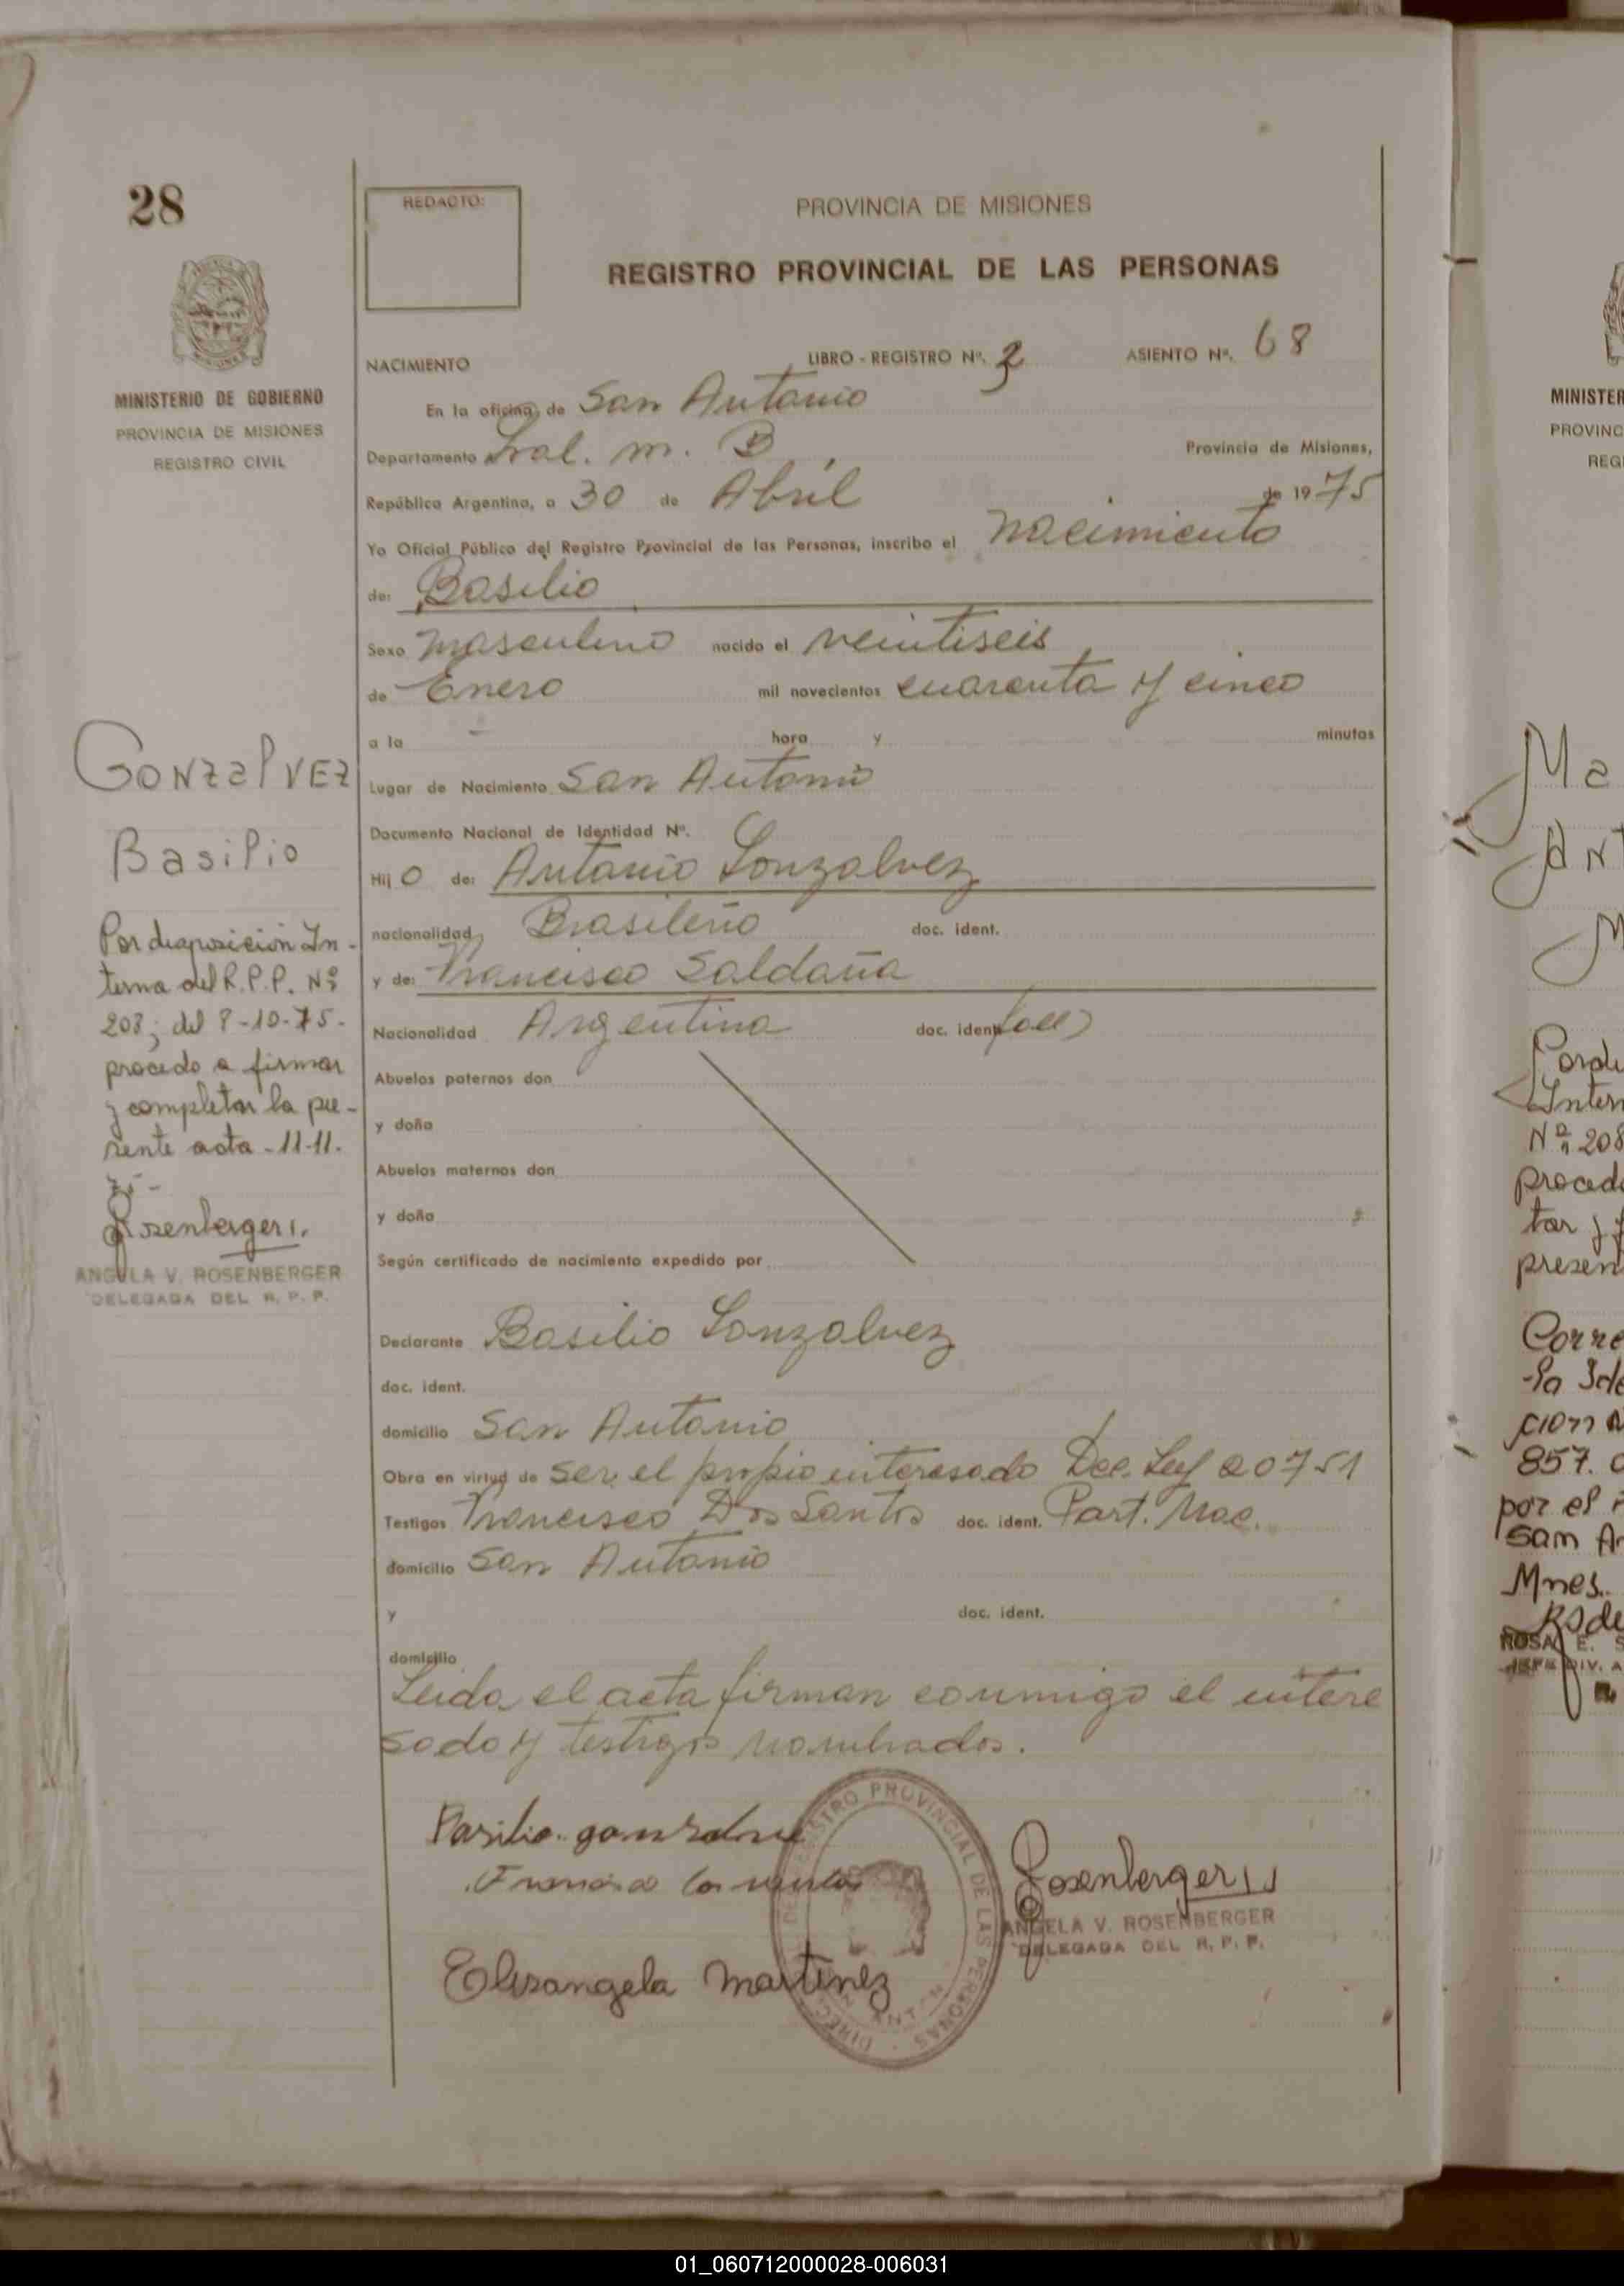 28
REDACTO:
PROVINCIA DE MISIONES
REGISTRO PROVINCIAL DE LAS PERSONAS
MINISTERIO DE GOBIERNO
PROVINCIA DE MISIONES
REGISTRO CIVIL
NACIMIENTO LIBRO - REGISTRO Nº. 2 ASIENTO Nº. 68
En la oficina de San Antonio
Departamento Gral. M. B. Provincia de Misiones,
República Argentina, a 30 de Abril de 1975
Yo Oficial Público del Registro Provincial de las Personas, inscribo el nacimiento
de: Basilio
Sexo masculino nacido el veintiseis
de Enero mil novecientos cuarenta y cinco
a la - hora y minutos
Lugar de Nacimiento San Antonio
Documento Nacional de Identidad Nº.
Hijo de: Antonio Gonzalvez
nacionalidad Brasileño doc. ident.
y de: Francisca Saldaña
Nacionalidad Argentina doc. ident.
Abuelos paternos don
y doña
Abuelos maternos don
y doña
Según certificado de nacimiento expedido por
Declarante Basilio Gonzalvez
doc. ident.
domicilio San Antonio
Obra en virtud de ser el propio interesado Dec. Ley 20751
Testigos Francisco Dos Santos doc. ident. Part. Nac.
domicilio San Antonio
y doc. ident.
domicilio
Leida el acta firman conmigo el intere
sado y testigos nombrados.
Rosenberger
ANGELA V. ROSENBERGER
DELEGADA DEL R. P. P.
Elisangela Martinez
DIRECC REGISTRO PROVINCIAL DE LAS PERSONAS
GONZalVEZ
Basilio
Por disposición In-
terna del R.P.P. Nº
208; del 8-10-75.
procedo a firmar
y completar la pre-
sente acta - 11-11.
75 -
Rosenberger
ANGELA V. ROSENBERGER
DELEGADA DEL R. P. P.
MINISTER
PROVINC
REG
Ma
Ant
M
Intern
Nº 208
proced
tar y f
presen
Corre
857.
por el
San An
Mnes.
ROSA E. S
JEFE DIV. A
01_060712000028-006031